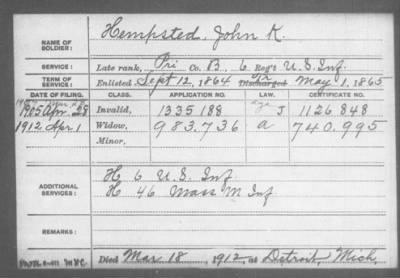 NAME OF SOLDIER: Hempsted, John K.
SERVICE: Late rank, Pri Co. B, 6 Reg't U.S. Inf.
TERM OF SERVICE: Enlisted Sept 12, 1864 Tr Discharged May 1, 1865
DATE OF FILING. CLASS. APPLICATION NO. LAW. CERTIFICATE NO.
1905 Apr. 28 Invalid, 1335188 age J 1126848
1912 Apr 1 Widow, 983.736 a 740.995
Minor,
ADDITIONAL SERVICES: H 6 U.S. Inf
H 46 Mass M Inf
REMARKS:
Died Mar 18, 1912, at Detroit Mich.